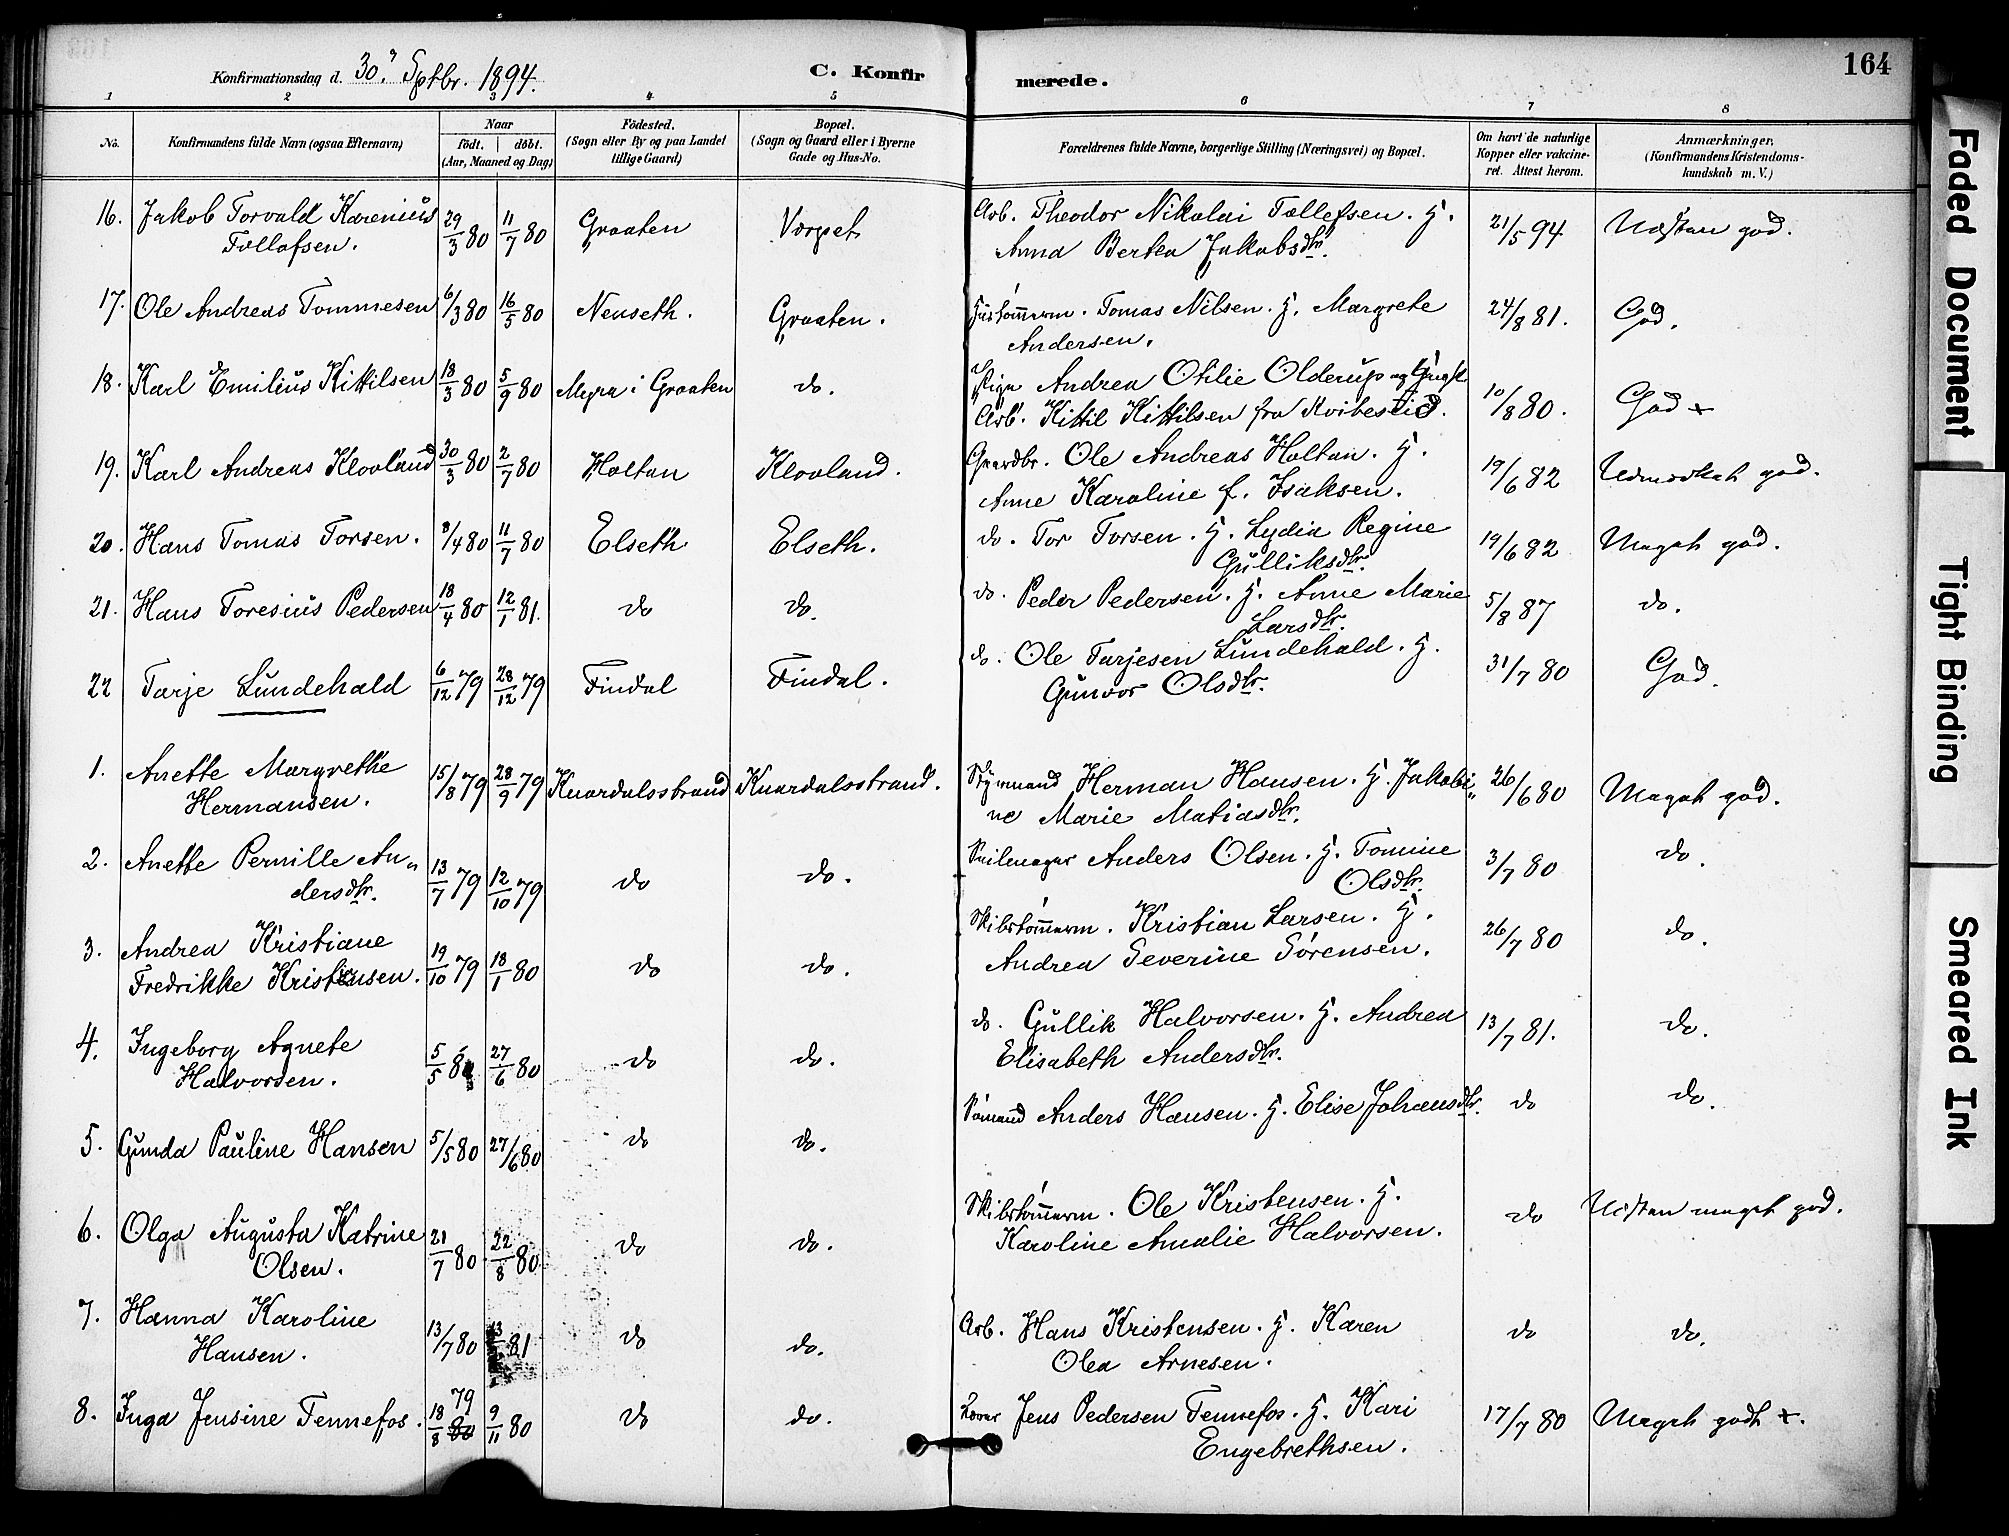 164
Konfirmationsdag d. 30. Sptbr. 1894.
C. Konfirmerede.
1 2 3 4 5 6 7 8
No.
Konfirmandens fulde Navn (ogsaa Efternavn)
Naar
födt. döbt.
(Aar, Maaned og Dag)
Födested.
(Sogn eller By og paa Landet
tillige Gaard)
Bopæl.
(Sogn og Gaard eller i Byerne
Gade og Hus-No.
Forældrenes fulde Navne, borgerlige Stilling (Næringsvei) og Bopæl.
Om havt de naturlige
Kopper eller vakcine-
ret. Attest herom.
Anmærkninger.
(Konfirmandens Kristendoms-
kundskab m. V.)
16. Jakob Torvald Karenius 29/3 80 11/7 80 Graaten Værpet Arb. Theodor Nikolai Tollefsen. H. 21/5 94 Næsten god.
Tollafsen. Anna Bertea Jakobsdtr.
17. Ole Andreas Tommesen 6/3 80 16/5 80 Neuseth. Graaten. Hustömmerm. Tomas Nilsen. H. Margrete 24/8 81. God.
Andersen.
18. Karl Emilius Kittilsen 18/3 80 5/9 80 Myra i Graaten do. Pige Andrea Otilie Olderup og Ungk. 10/8 80. God +
Arb. Kittil Kittilsen fra Kvibestid.
19. Karl Andreas Klovland 30/3 80 2/7 80 Holtan Klovland. Gaardbr. Ole Andreas Holtan. H. 19/6 82 Udmærket god.
Anne Karoline f. Isaksen.
20. Hans Tomas Torsen. 8/4 80 11/7 80 Elseth Elseth. do. Tor Torsen. H. Lydia Regine 19/6 82 Meget god.
Gulliksdtr.
21. Hans Toresius Pedersen 18/4 80 12/1 81. do do. do. Peder Pedersen. H. Anne Marie 5/8 87 do.
Larsdtr.
22 Tarje Lundehald 6/12 79 28/12 79 Findal Findal. do. Ole Tarjesen Lundehald. H. 31/7 80 God.
Gunvor Olsdtr.
1. Anette Margrethe 15/8 79 28/9 79 Knardalsstrand Knardalsstrand. Styrmand Herman Hansen. H. Jakobi„ 26/6 80 Meget god.
Hermansen. ne Marie Matiasdtr.
2. Anette Pernille An„ 13/7 79 12/10 79 do do. Seilmager Anders Olsen. H. Tomine 3/7 80 do.
dersdtr. Olsdtr.
3. Andrea Kristiane 19/10 79 18/1 80 do do. Skibstömmerm. Kristian Larsen. H. 26/7 80 do.
Fredrikke Kristiansen. Andrea Severine Sörensen.
4. Ingeborg Agnete 5/5 80 27/6 80 do do. do. Gullik Halvorsen. H. Andrea 13/7 81. do.
Halvorsen. Elisabeth Andersdtr.
5. Gunda Pauline Hansen 5/5 80 27/6 80 do do. Sömand Anders Hansen. H. Elise Johansdtr. do do.
6. Olga Augusta Katrine 21/7 80 22/8 80 do do. Skibstömmerm. Ole Kristensen. H. do Næsten meget god.
Olsen. Karoline Amalie Halvorsen.
7. Hanna Karoline 13/7 80 81 do do. Arb. Hans Kristensen. H. Karen do do.
Hansen. Olea Arnesen.
8. Inga Jensine Tennefos. 18/8 79 80 9/11 80 do do. Jens Pedersen Tennefos. H. Kari 17/7 80 Meget godt +.
Engebrethsen.
Faded Document
Tight Binding
Smeared Ink